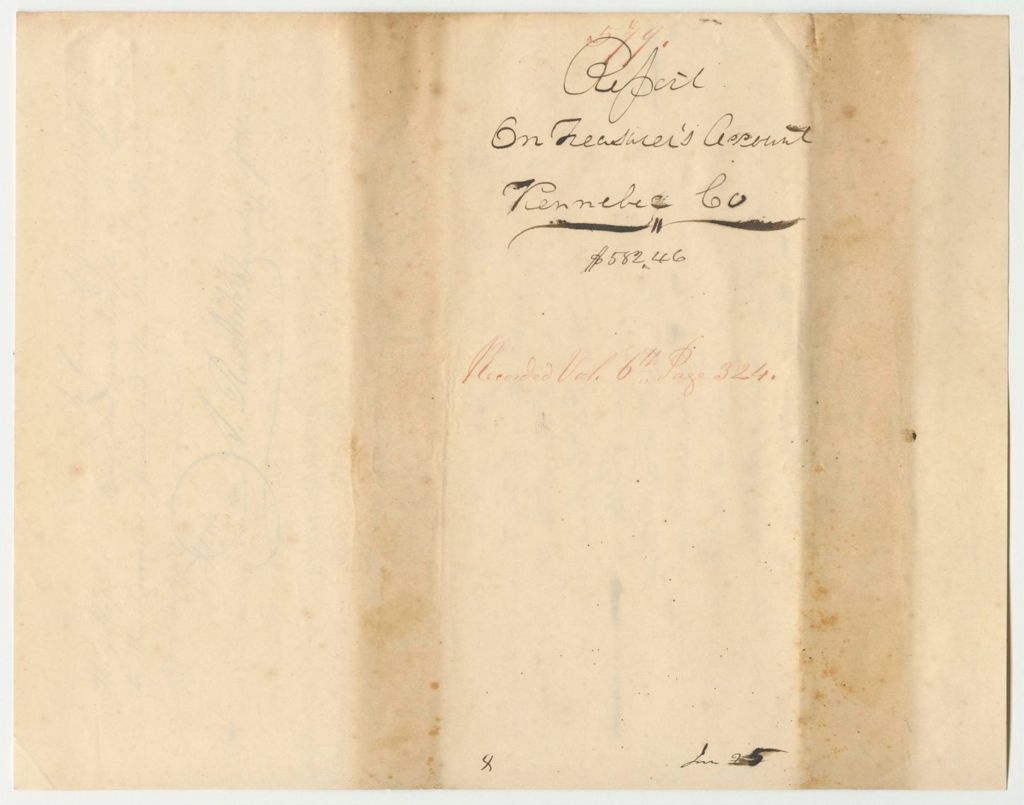 579.
Report
On Treasurer's Account
Kennebec Co
$582.46
Recorded Vol. 6th Page 324.
8 Jan 25